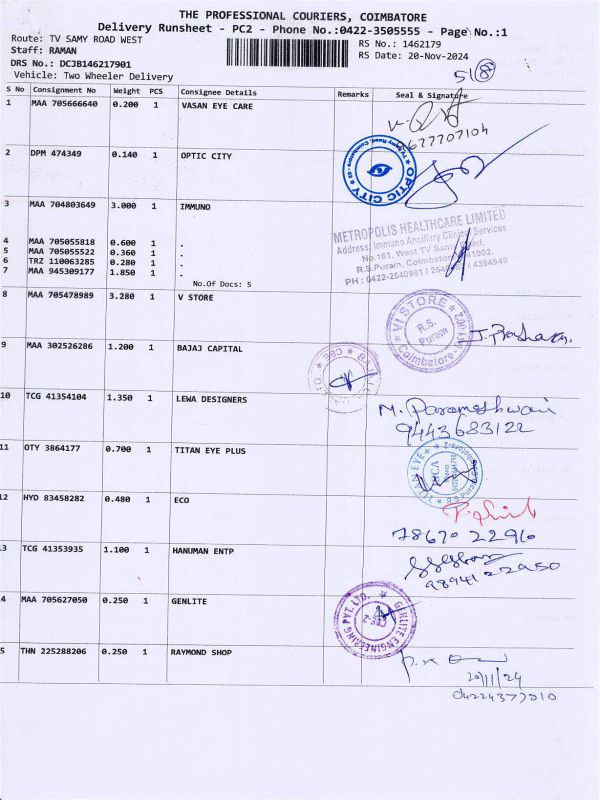 THE PROFESSIONAL COURIERS, COIMBATORE
Delivery Runsheet - PC2 - Phone No.:0422-3505555 - Page No.:1
Route: TV SAMY ROAD WEST
RS No.: 1462179
Staff: RAMAN
RS Date: 20-Nov-2024
DRS No.: DCJB146217901
Vehicle: Two Wheeler Delivery
S No Consignment No Weight PCS Consignee Details Remarks Seal & Signature
1 MAA 705666640 0.200 1 VASAN EYE CARE
2 DPM 474349 0.140 1 OPTIC CITY
OPTIC CITY
3 MAA 704803649 3.000 1 IMMUNO
METROPOLIS HEALTHCARE LIMITED
Address: Immuno Ancillary Clinical Services
No.161, West TV Samy Road,
R.S.Puram, Coimbatore
4 MAA 705055818 0.600 1 .
5 MAA 705055522 0.360 1 .
6 TRZ 110063285 0.280 1 .
7 MAA 945309177 1.850 1 .
No.Of Docs: 5
8 MAA 705478989 3.280 1 V STORE
VI STORE
R.S.
Puram
Coimbatore
9 MAA 302526286 1.200 1 BAJAJ CAPITAL
10 TCG 41354104 1.350 1 LEWA DESIGNERS
M. Parameshwari
9443683122
11 OTY 3864177 0.700 1 TITAN EYE PLUS
12 HYD 83458282 0.480 1 ECO
3 TCG 41353935 1.100 1 HANUMAN ENTP
4 MAA 705627050 0.250 1 GENLITE
GENLITE ENGINEERING PVT. LTD.
CBE-2
5 THN 225288206 0.250 1 RAYMOND SHOP
20/11/24